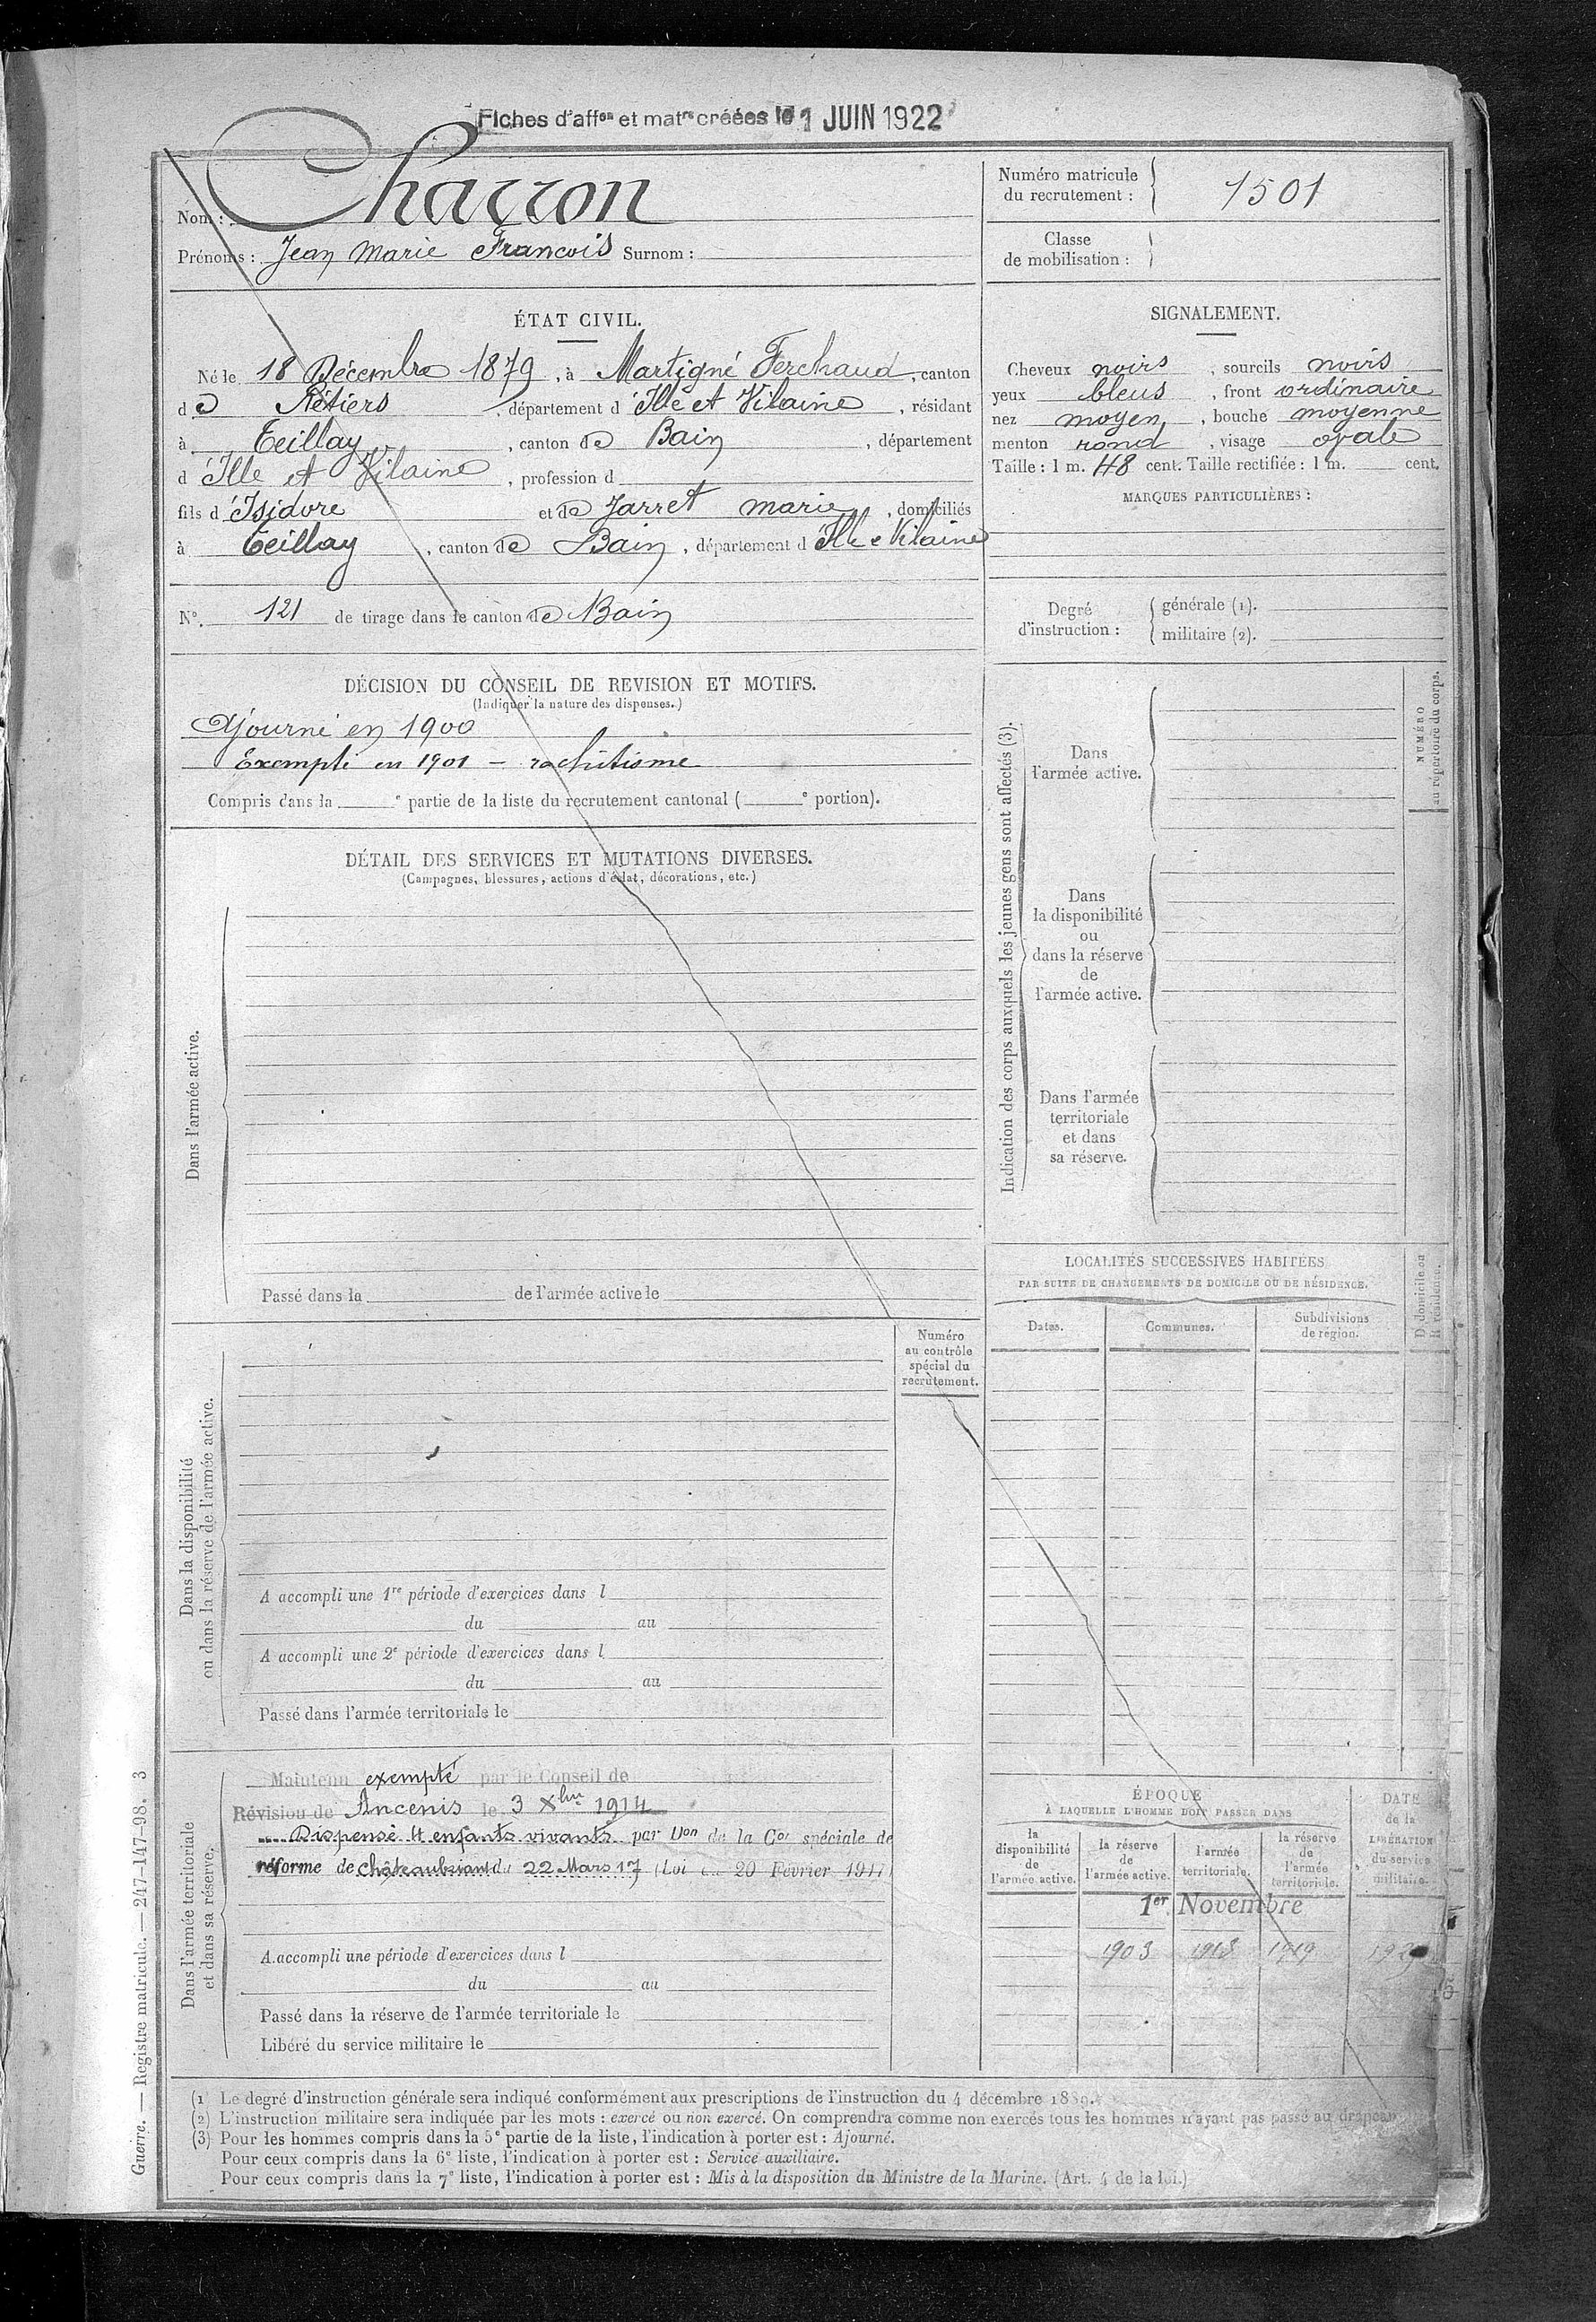 Fiches d'affon et matre créées le 1 JUIN 1922
Nom : Charron
Prénoms : Jean Marie François Surnom :
Numéro matricule
du recrutement : 1501
Classe
de mobilisation :
ÉTAT CIVIL.
Né le 18 Décembre 1879, à Martigné Ferchaud, canton
de Rétiers, département d'Ille et Vilaine, résidant
à Teillay, canton de Bain, département
d'Ille et Vilaine, profession d
fils d'Isidore et de Jarret marie, domiciliés
à Teillay, canton de Bain, département d'Ille e Vilaine
N° 121 de tirage dans le canton de Bain
SIGNALEMENT.
Cheveux noirs, sourcils noirs
yeux bleus, front ordinaire
nez moyen, bouche moyenne
menton rond, visage ovale
Taille : 1 m. 48 cent. Taille rectifiée : 1 m. cent.
MARQUES PARTICULIÈRES :
Degré
d'instruction :
générale (1).
militaire (2).
DÉCISION DU CONSEIL DE REVISION ET MOTIFS.
(Indiquer la nature des dispenses.)
Ajourné en 1900
Exempté en 1901 - rachitisme
Compris dans la e partie de la liste du recrutement cantonal ( e portion).
DÉTAIL DES SERVICES ET MUTATIONS DIVERSES.
(Campagnes, blessures, actions d'éclat, décorations, etc.)
Dans l'armée active.
Passé dans la de l'armée active le
Indication des corps auxquels les jeunes gens sont affectés (3).
Dans
l'armée active.
Dans
la disponibilité
ou
dans la réserve
de
l'armée active.
Dans l'armée
territoriale
et dans
sa réserve.
NUMÉRO
au répertoire du corps.
LOCALITÉS SUCCESSIVES HABITÉES
PAR SUITE DE CHANGEMENTS DE DOMICILE OU DE RÉSIDENCE.
Dates.
Communes.
Subdivisions
de région.
D. domicile ou
R. résidence.
Numéro
au contrôle
spécial du
recrutement.
Dans la disponibilité
ou dans la réserve de l'armée active.
A accompli une 1re période d'exercices dans l
du au
A accompli une 2e période d'exercices dans l
du au
Passé dans l'armée territoriale le
Dans l'armée territoriale
et dans sa réserve.
Maintenu exempté par le Conseil de
Révision de Ancenis le 3 Xbre 1914
Dispensé 4 enfants vivants par Don de la Con spéciale de
réforme de Châteaubriant du 22 Mars 17 (Loi du 20 Février 1917)
A accompli une période d'exercices dans l
du au
Passé dans la réserve de l'armée territoriale le
Libéré du service militaire le
ÉPOQUE
À LAQUELLE L'HOMME DOIT PASSER DANS
la
disponibilité
de
l'armée active.
la réserve
de
l'armée active.
l'armée
territoriale.
la réserve
de
l'armée
territoriale.
DATE
de la
LIBÉRATION
du service
militaire.
1er Novembre
1903 1913 1919
(1) Le degré d'instruction générale sera indiqué conformément aux prescriptions de l'instruction du 4 décembre 1889.
(2) L'instruction militaire sera indiquée par les mots : exercé ou non exercé. On comprendra comme non exercés tous les hommes n'ayant pas passé au drapeau
(3) Pour les hommes compris dans la 5e partie de la liste, l'indication à porter est : Ajourné.
Pour ceux compris dans la 6e liste, l'indication à porter est : Service auxiliaire.
Pour ceux compris dans la 7e liste, l'indication à porter est : Mis à la disposition du Ministre de la Marine. (Art. 4 de la loi.)
Guerre. — Registre matricule. — 247-147-98. 3